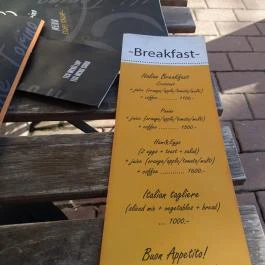 MENU
-Breakfast-
Italian Breakfast
Croissant
+ juice (orange/apple/tomato/multi)
+ coffee .......... 1100.-
Panino
+ juice (orange/apple/tomato/multi)
+ coffee .......... 1500.-
Ham&Eggs
(2 eggs + toast + salad)
+ juice (orange/apple/tomato/multi)
+ coffee .......... 1600.-
Italian tagliere
(sliced mix + vegetables + bread)
... 1000.-
Buon Appetito!